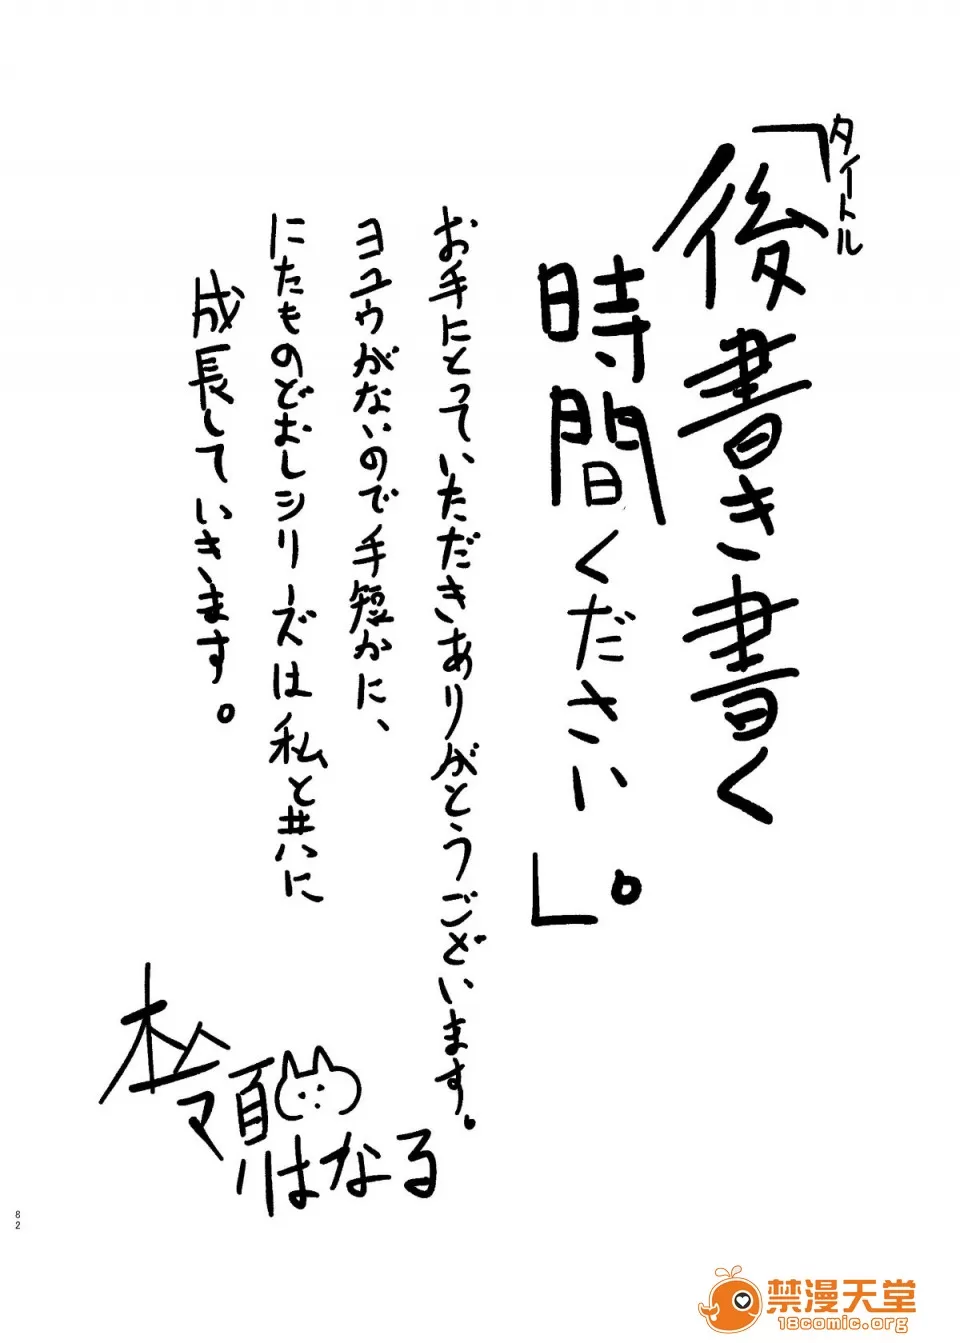 タイトル
「後書き書く
時間ください」。
お手にとっていただきありがとうございます。
ヨユウがないので手短かに、
にたものどおしシリーズは私と共に
成長していきます。
はなる
82
禁漫天堂
18comic.org